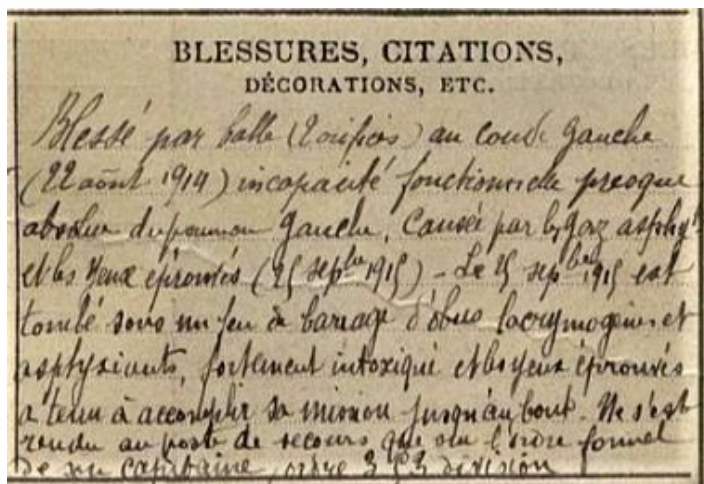 BLESSURES, CITATIONS,
DÉCORATIONS, ETC.
Blessé par balle (2 orifices) au coude gauche
(22 août 1914) incapacité fonctionnelle presque
absolue du poumon gauche, causée par les gaz asphy.
et les yeux éprouvés (25 sepbre 1915) - Le 25 sepbre 1915 est
tombé sous un feu de barrage d'obus lacrymogènes et
asphysiants, fortement intoxiqué et les yeux éprouvés
a tenu à accomplir sa mission jusqu'au bout. Ne s'est
rendu au poste de secours que sur l'ordre formel
de son capitaine, ordre division